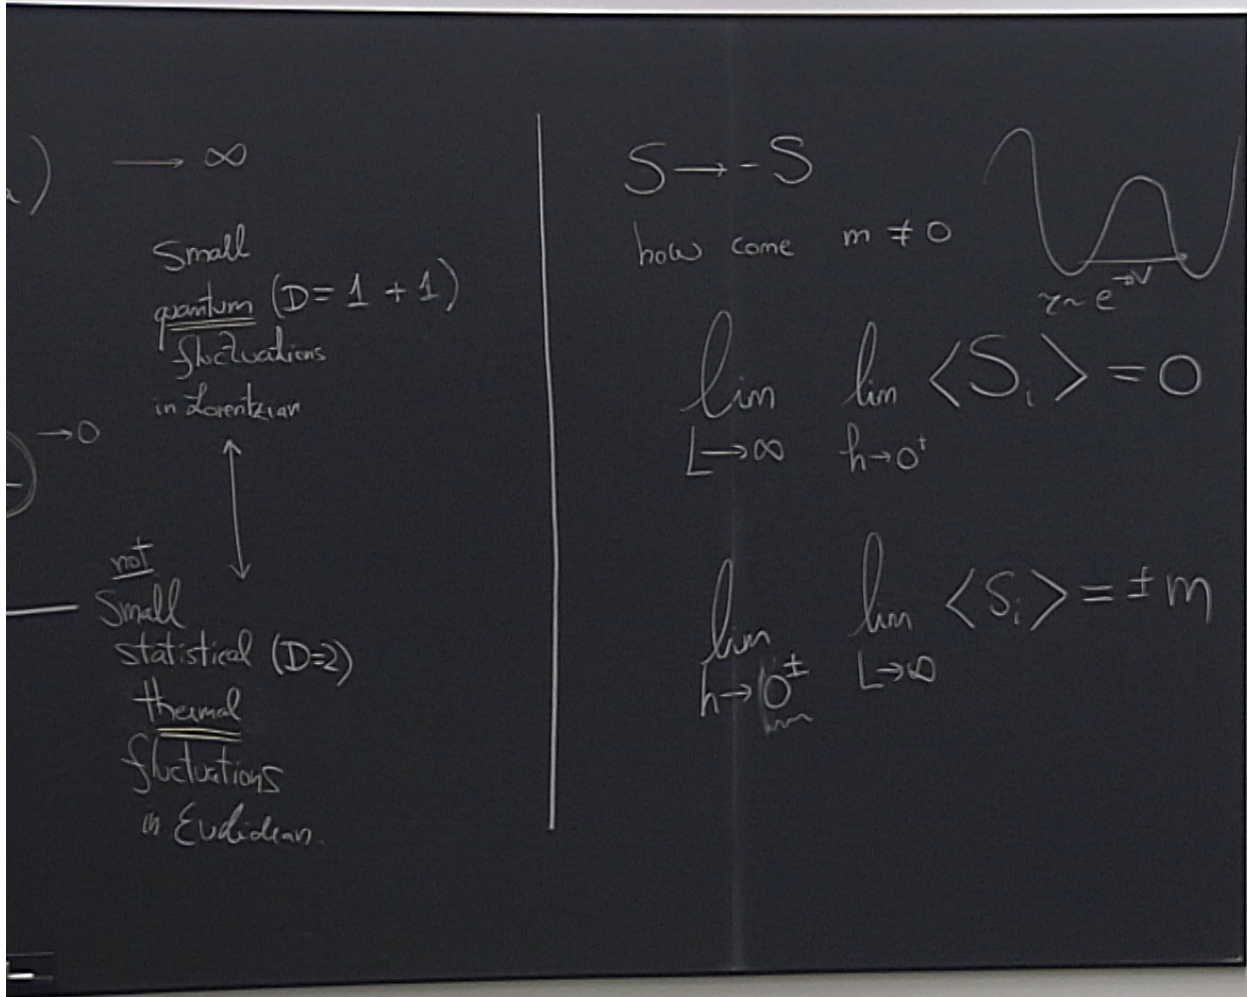 ) → ∞
Small
quantum (D = 1 + 1)
fluctuations
in Lorentzian
→0
not
Small
statistical (D=2)
thermal
fluctuations
in Euclidean.
S → -S
how come m ≠ 0
lim lim <S_i> = 0
L→∞ h→0⁺
lim lim <S_i> = ± m
h→0^± L→∞